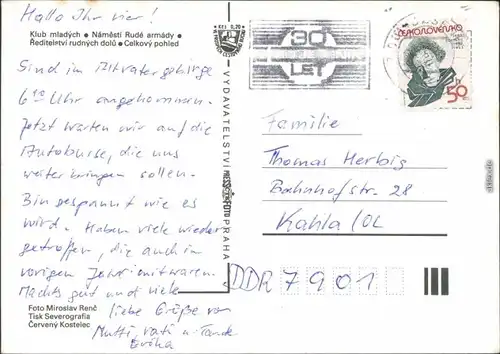 Hallo Ihr vier!
Klub mladých • Náměstí Rudé armády •
Ředitelství rudných dolů • Celkový pohled
Sind im Altvatergebirge
6 10 Uhr angekommen.
Jetzt warten wir auf die
Autobusse, die uns
weiter bringen sollen.
Bin gespannt wie es
wird. Haben viele wieder
getroffen, die auch im
vorigen Jahr mit waren.
Machts gut und viele
liebe Grüße von
Mutti, Vati u. Tante
Erika
Foto Miroslav Renč
Tisk Severografia
Červený Kostelec
Kčs 0,70
VYDAVATELSTVÍ PRESSFOTO PRAHA
30
LET
ČESKOSLOVENSKO
50
Familie
Thomas Herbig
Bahnhofstr. 28
Kahla /OL
DDR 7901